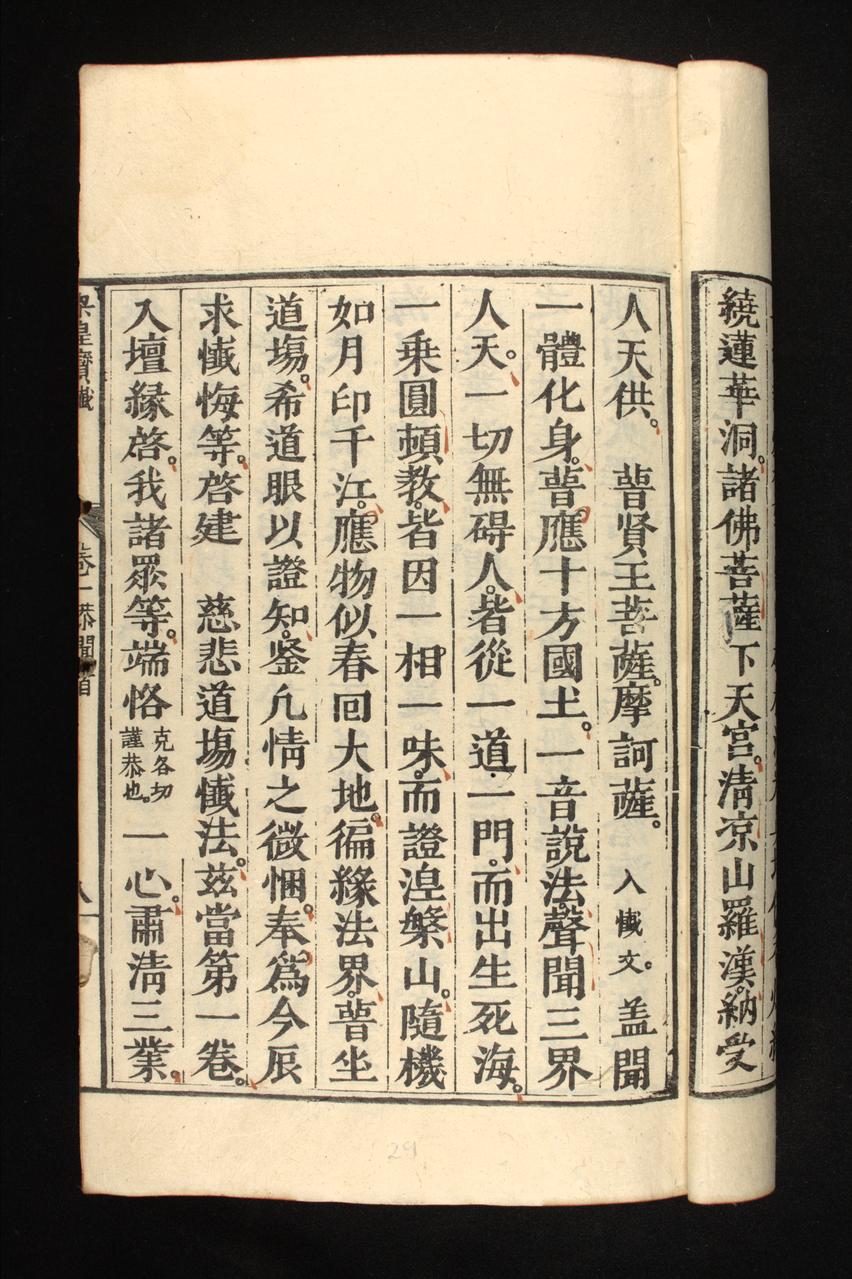 繞蓮華洞。諸佛菩薩下天宮。清凉山羅漢。納受
人天供。　普賢王菩薩。摩訶薩。入懴文。盖聞
一體化身。普應十方國土。一音說法。聲聞三界
人天。一切無碍人。皆從一道一門。而出生死海。
一乘圓頓教。皆因一相一味。而證湼槃山。隨機
如月印千江。應物似春回大地。徧緣法界。普坐
道塲。希道眼以證知。鉴凢情之微悃。奉爲今辰
求懴悔等。啓建　慈悲道塲懴法。玆當第一卷。
入壇緣啓。我諸眾等。端恪克各切謹恭也。一心。肅清三業。
梁皇寶懴　卷一恭聞啓　八
29